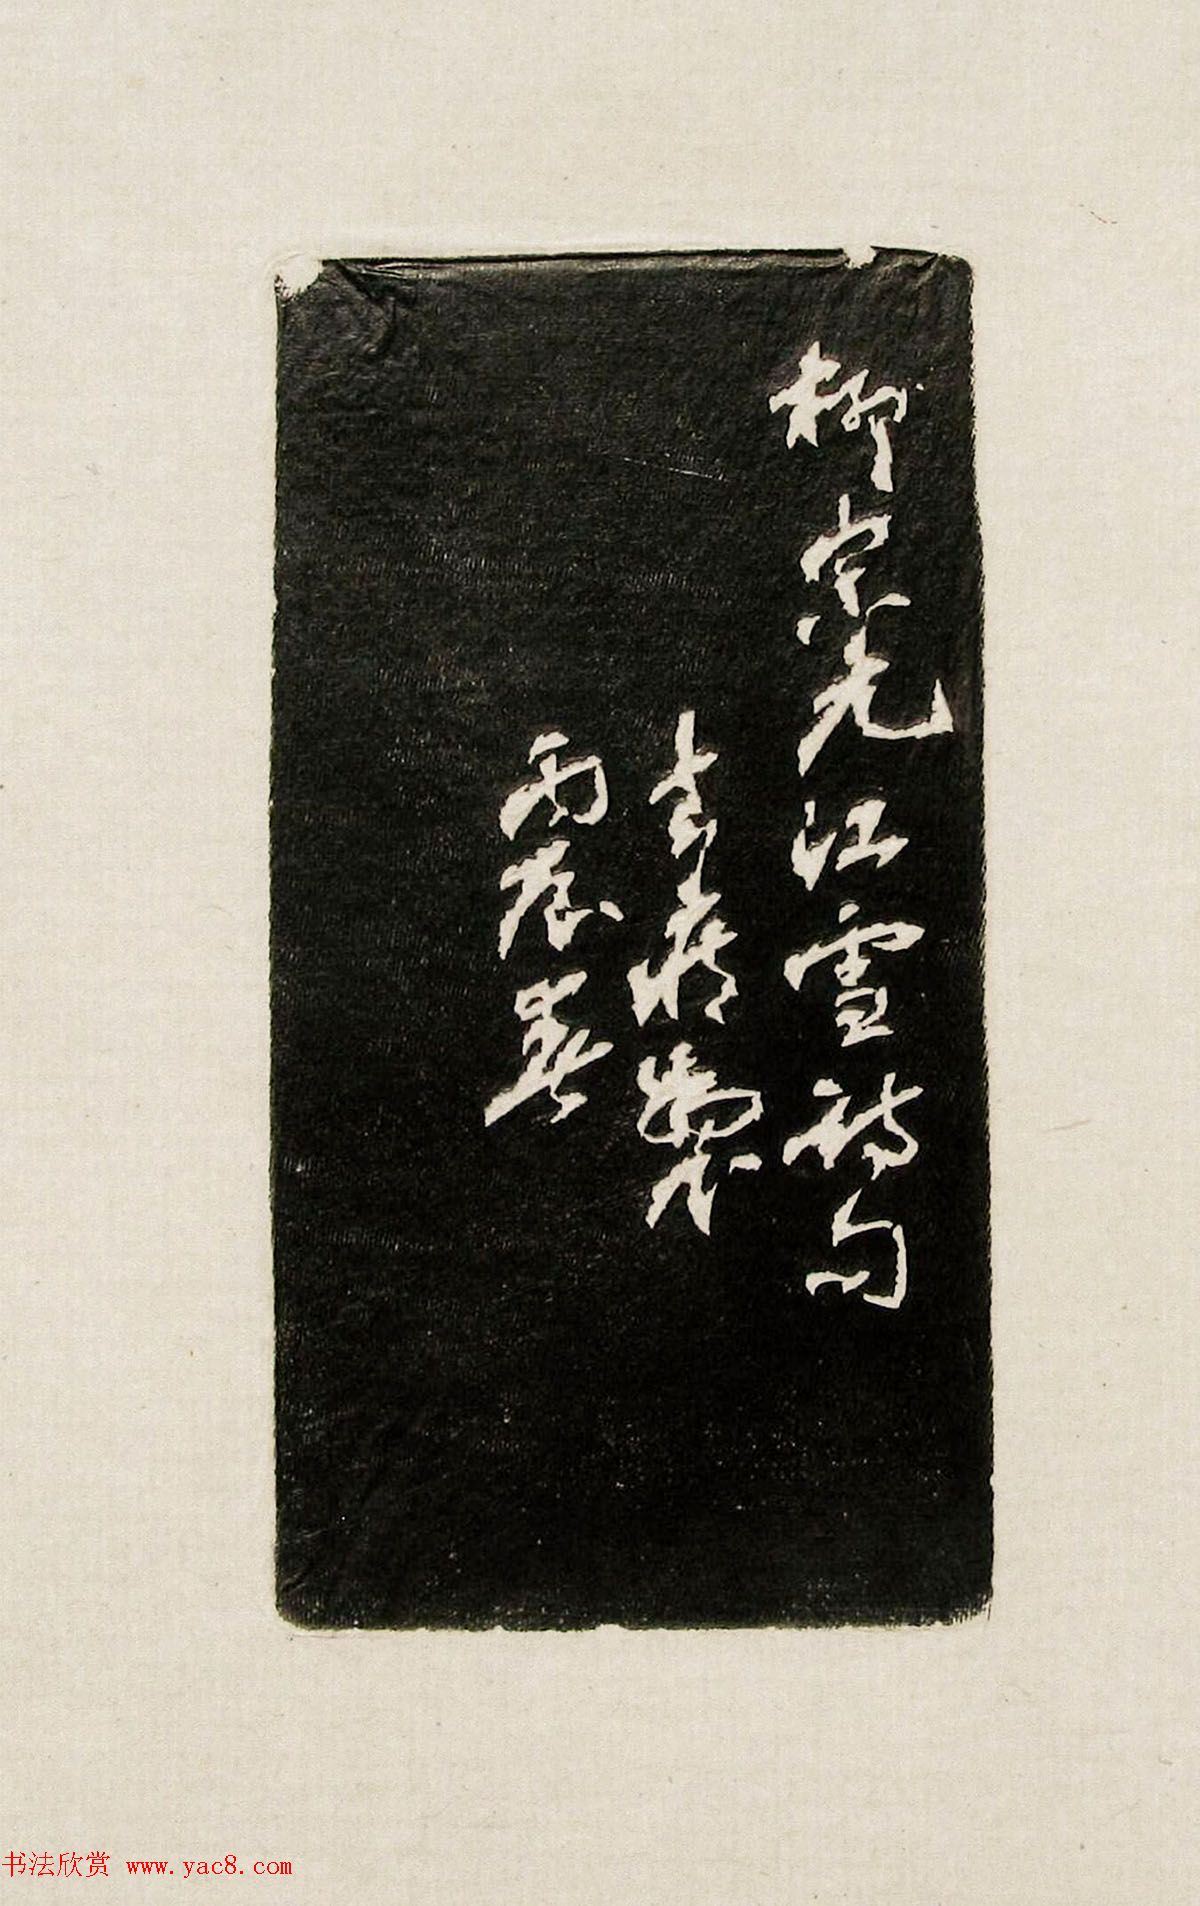 柳宗元江雪詩句
去疾製
丙辰
书法欣赏 www.yac8.com